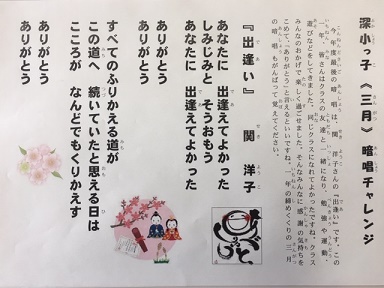 深小っ子《三月》暗唱チャレンジ
今年度最後の暗唱は、関洋子さんの「出逢い」です。この
一年、皆さんはクラスの友達と一緒になり、勉強や運動、
遊びなどをしてきました。同じクラスになれてよかったですね。クラス
みんなのおかげで楽しく過ごせました。そんなみんなに感謝の気持ちを
こめて、「ありがとう」と言えるといいですね。一年の締めくくりの三月
の暗唱もがんばって覚えてください。
『出逢い』 関 洋子
あなたに 出逢えてよかった
しみじみと そうおもう
あなたに 出逢えてよかった
ありがとう
ありがとう
すべてのふりかえる道が
この道へ 続いていたと思える日は
こころが なんどでもくりかえす
ありがとう
ありがとう